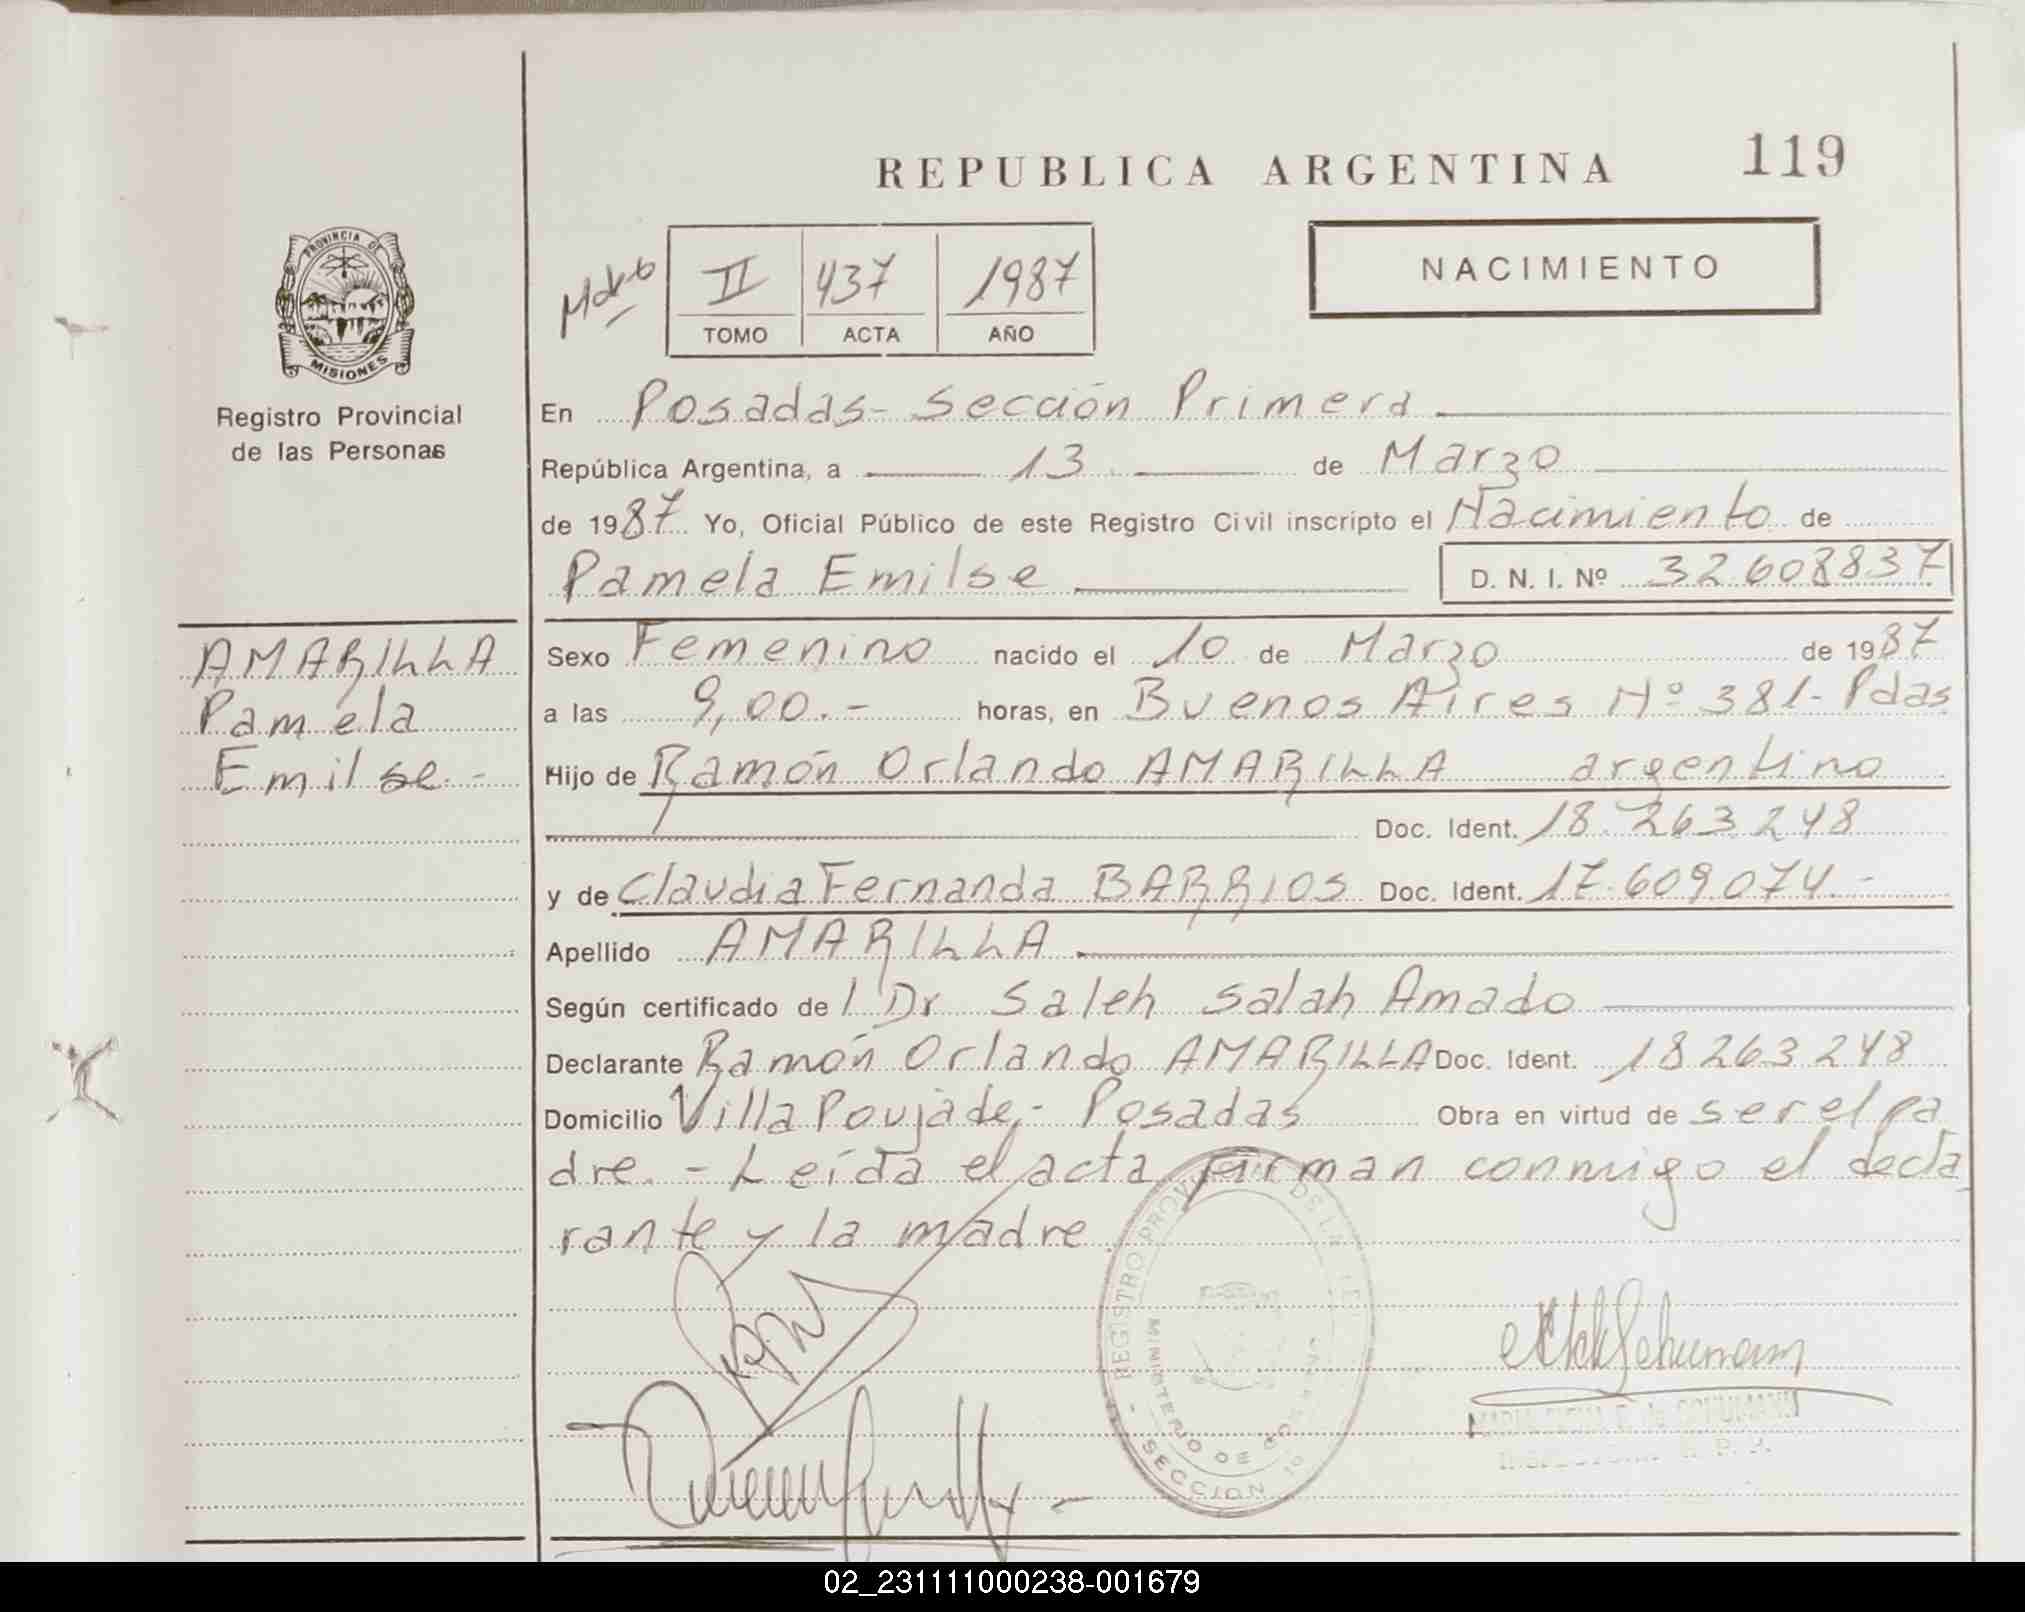 REPUBLICA ARGENTINA 119
NACIMIENTO
II 437 1987
TOMO ACTA AÑO
PROVINCIA DE
MISIONES
Registro Provincial
de las Personas
En Posadas - Sección Primera
República Argentina, a 13 de Marzo
de 1987 Yo, Oficial Público de este Registro Civil inscripto el Nacimiento de
Pamela Emilse D. N. I. Nº 32.608837
AMARILLA
Pamela
Emilse.-
Sexo Femenino nacido el 10 de Marzo de 1987
a las 9,00.- horas, en Buenos Aires Nº 381- Pdas
Hijo de Ramón Orlando AMARILLA argentino
Doc. Ident. 18.263.248
y de Claudia Fernanda BARRIOS Doc. Ident. 17.609.074.-
Apellido AMARILLA
Según certificado del Dr Saleh Salah Amado
Declarante Ramón Orlando AMARILLA Doc. Ident. 18263248
Domicilio Villa Poujade,- Posadas Obra en virtud de ser el pa
dre.- Leída el acta firman conmigo el decla
rante y la madre.
REGISTRO PROVINCIAL DE LAS
MINISTERIO DE GOBIERNO
SECCION 1º
02_231111000238-001679